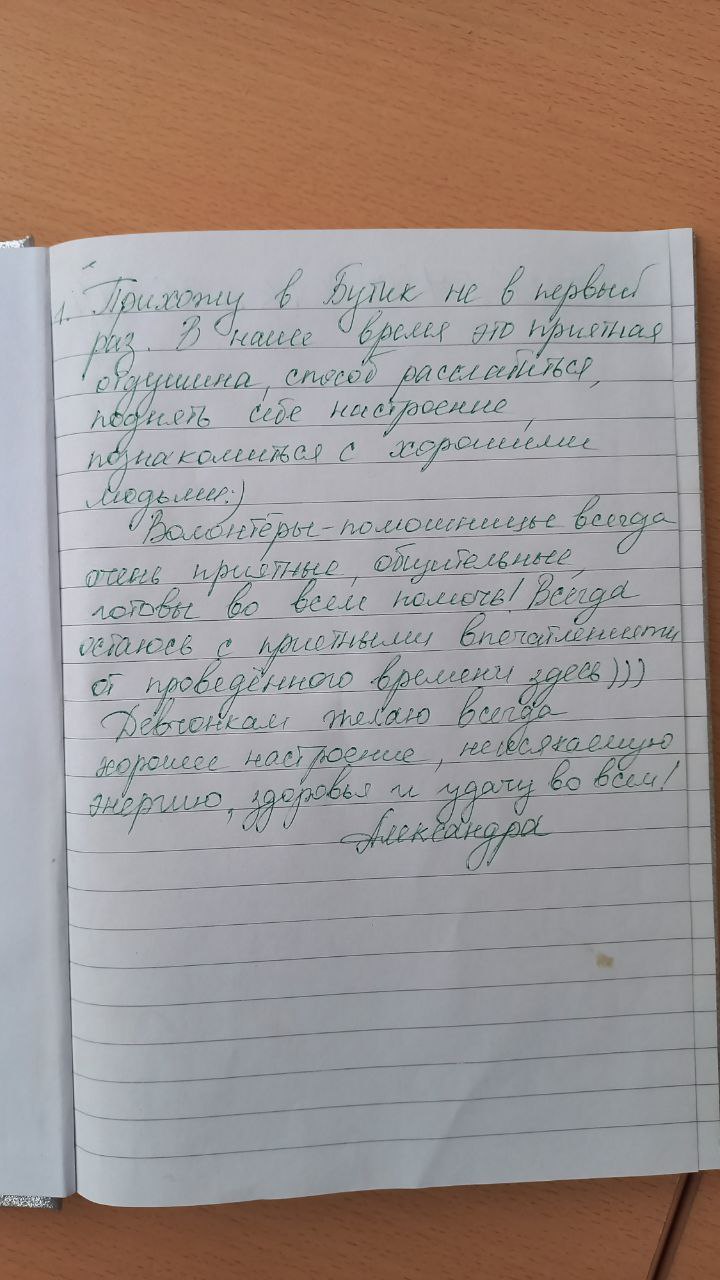 1. Прихожу в Бутик не в первый
раз. В наше время это приятная
отдушина, способ расслабиться,
поднять себе настроение,
познакомиться с хорошими
людьми:)
Волонтёры-помошницы всегда
очень приятные, общительные,
готовы во всем помочь! Всегда
остаюсь с приятными впечатлениями
от проведённого времени здесь)))
Девчонкам желаю всегда
хорошее настроение, неиссякаемую
энергию, здоровья и удачу во всем!
Александра